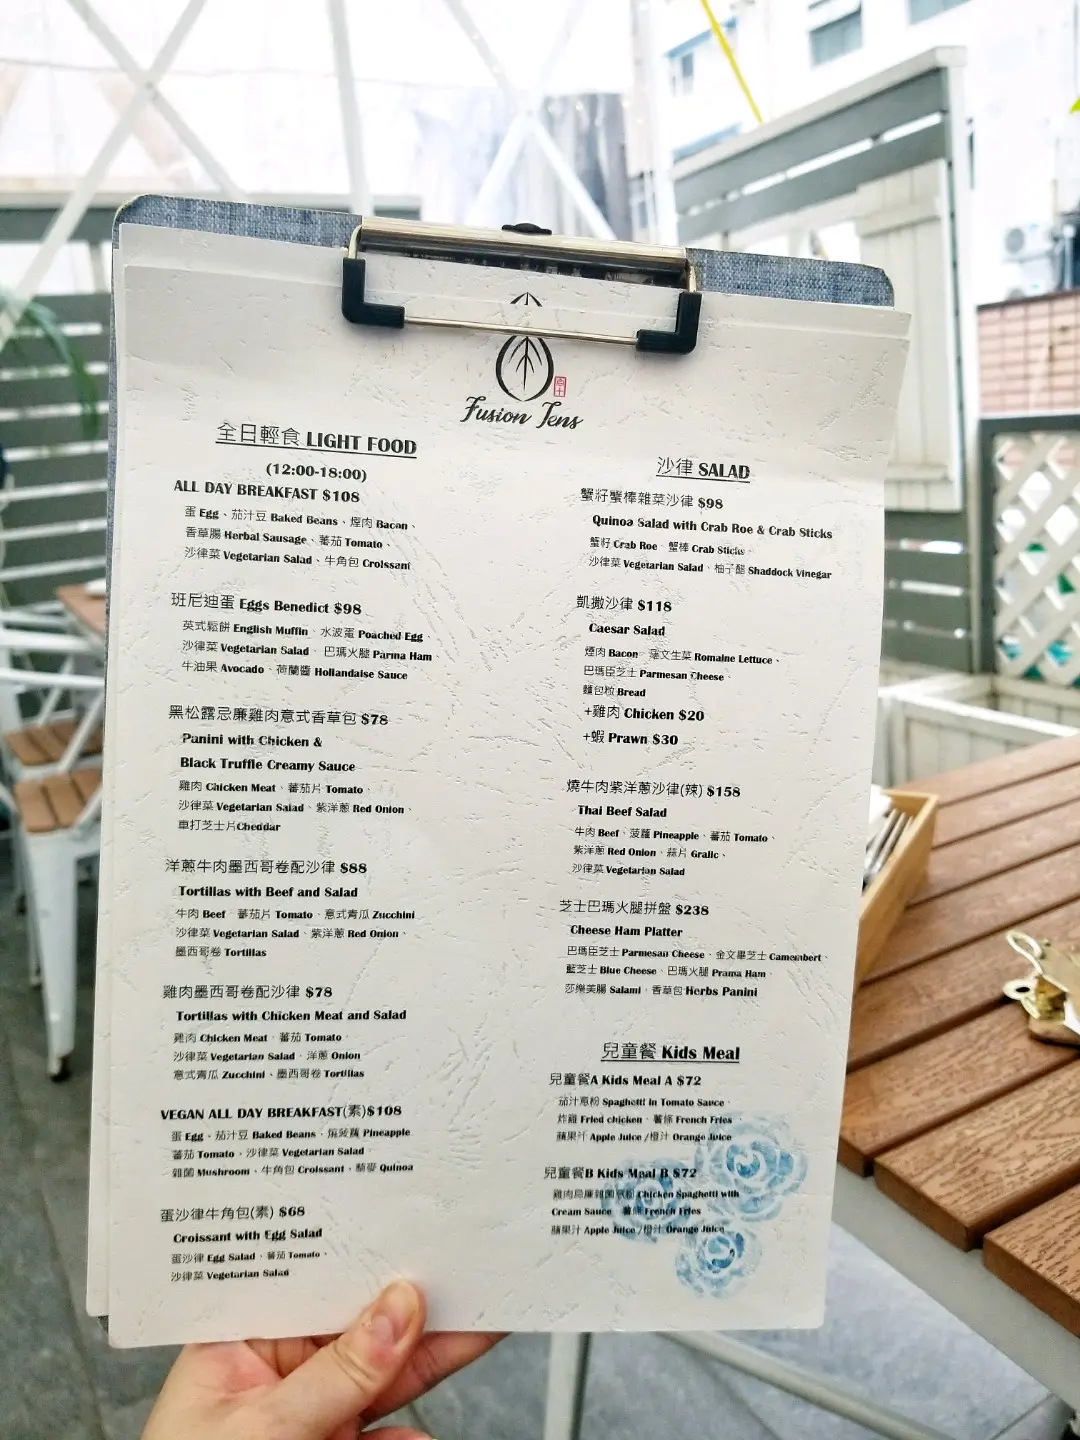 Fusion Tens
全日輕食 LIGHT FOOD
(12:00-18:00)
ALL DAY BREAKFAST $108
蛋 Egg、茄汁豆 Baked Beans、煙肉 Bacon、
香草腸 Herbal Sausage、蕃茄 Tomato、
沙律菜 Vegetarian Salad、牛角包 Croissant
班尼迪蛋 Eggs Benedict $98
英式鬆餅 English Muffin、水波蛋 Poached Egg、
沙律菜 Vegetarian Salad、巴瑪火腿 Parma Ham、
牛油果 Avocado、荷蘭醬 Hollandaise Sauce
黑松露忌廉雞肉意式香草包 $78
Panini with Chicken &
Black Truffle Creamy Sauce
雞肉 Chicken Meat、蕃茄片 Tomato、
沙律菜 Vegetarian Salad、紫洋蔥 Red Onion、
車打芝士片Cheddar
洋蔥牛肉墨西哥卷配沙律 $88
Tortillas with Beef and Salad
牛肉 Beef、蕃茄片 Tomato、意式青瓜 Zucchini
沙律菜 Vegetarian Salad、紫洋蔥 Red Onion、
墨西哥卷 Tortillas
雞肉墨西哥卷配沙律 $78
Tortillas with Chicken Meat and Salad
雞肉 Chicken Meat、蕃茄 Tomato、
沙律菜 Vegetarian Salad、洋蔥 Onion
意式青瓜 Zucchini、墨西哥卷 Tortillas
VEGAN ALL DAY BREAKFAST(素)$108
蛋 Egg、茄汁豆 Baked Beans、燒菠蘿 Pineapple
蕃茄 Tomato、沙律菜 Vegetarian Salad
雜菌 Mushroom、牛角包 Croissant、藜麥 Quinoa
蛋沙律牛角包(素) $68
Croissant with Egg Salad
蛋沙律 Egg Salad、蕃茄 Tomato、
沙律菜 Vegetarian Salad
沙律 SALAD
蟹籽蟹棒雜菜沙律 $98
Quinoa Salad with Crab Roe & Crab Sticks
蟹籽 Crab Roe、蟹棒 Crab Sticks、
沙律菜 Vegetarian Salad、柚子醋 Shaddock Vinegar
凱撒沙律 $118
Caesar Salad
煙肉 Bacon、羅文生菜 Romaine Lettuce、
巴瑪臣芝士 Parmesan Cheese、
麵包粒 Bread
+雞肉 Chicken $20
+蝦 Prawn $30
燒牛肉紫洋蔥沙律(辣) $158
Thai Beef Salad
牛肉 Beef、菠蘿 Pineapple、蕃茄 Tomato、
紫洋蔥 Red Onion、蒜片 Gralic、
沙律菜 Vegetarian Salad
芝士巴瑪火腿拼盤 $238
Cheese Ham Platter
巴瑪臣芝士 Parmesan Cheese、金文畢芝士 Camembert、
藍芝士 Blue Cheese、巴瑪火腿 Prama Ham、
莎樂美腸 Salami、香草包 Herbs Panini
兒童餐 Kids Meal
兒童餐A Kids Meal A $72
茄汁意粉 Spaghetti in Tomato Sauce、
炸雞 Fried chicken、薯條 French Fries、
蘋果汁 Apple Juice /橙汁 Orange Juice
兒童餐B Kids Meal B $72
雞肉忌廉雜菌意粉 Chicken Spaghetti with
Cream Sauce、薯條 French Fries
蘋果汁 Apple Juice /橙汁 Orange Juice